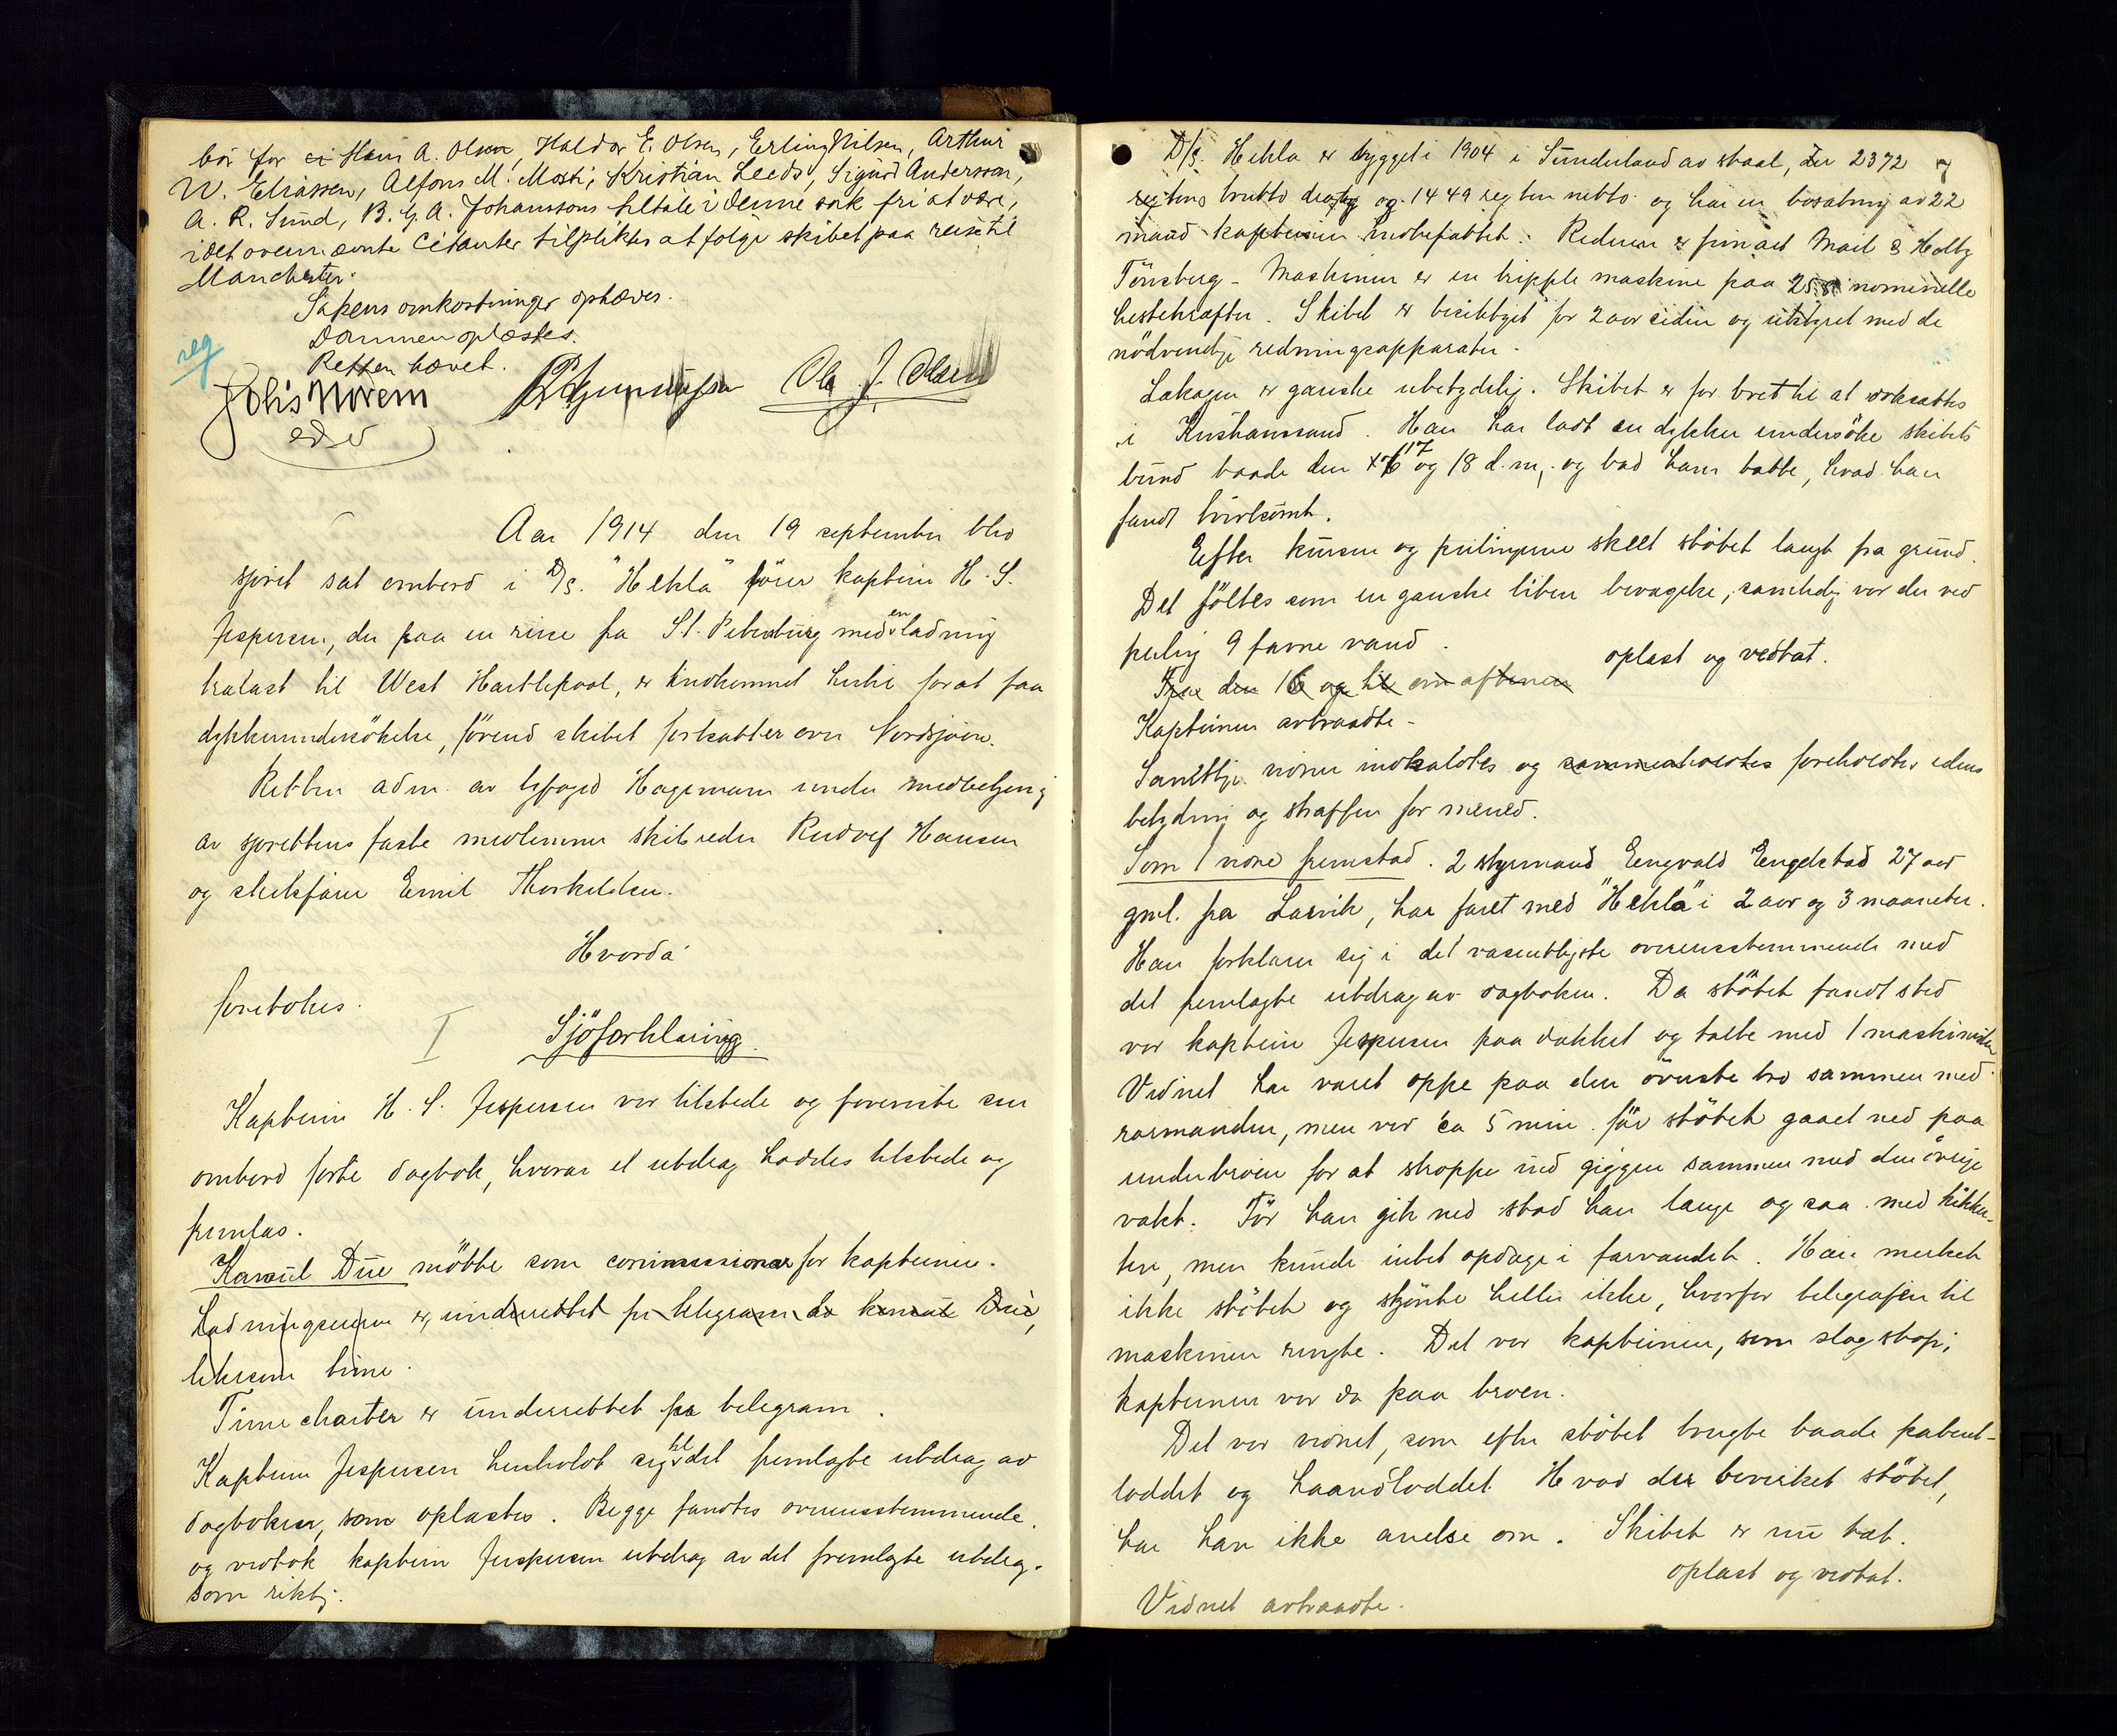 bör for ei Hans A. Olsen, Haldor E. Olsen, Erling Nilsen, Arthur
W. Eliassen, Alfons M. Mosti, Kristian Leeds, Sigurd Andersson,
A. R. Sund, B. G. A. Johanssons tiltale i denne sak fri at være,
idet ovennævnte Citanter tilpliktes at følge skibet paa reise til
Manchester.
Sakens omkostninger ophæves.
Dommen oplæstes.
Retten hævet.
reg
Johs Norem
Ole J. Olsen
Aar 1914 den 19 september blev
sjöret sat ombord i D/S. "Hekla" förer kaptein H. S.
Jespersen, der paa en reise fra St. Petersburg med en ladning
trælast til West Hartlepool, er indkommet hertil for at faa
dykkerundersökelse, förend skibet fortsætter over Nordsjöen.
Retten adm. av byfoged Hagemann under medbetjening
av sjørettens faste medlemmer skibsreder Rudolf Hansen
og skibsförer Emil Thorkildsen.
Hvorda
foretokes.
I Sjöforklaring.
Kaptein H. S. Jespersen var tilstede og foreviste sin
ombord förte dagbok, hvorav et utdrag haddes tilstede og
fremlas.
Konsul Due mötte som commissionær for kapteinen.
Ladningseieren er underrettet pr telegram av konsul Due,
likesom time
Time charter er underrettet pr telegram.
Kaptein Jespersen henholdt sig til det fremlagte utdrag av
dagboken, som oplæstes. Begge fandtes overensstemmende.
og vedtok kaptein Jespersen utdrag av det fremlagte utdrag.
som riktig.
7
D/S. Hekla er bygget i 1904 i Sunderland av staal, der 2372
reg tons brutto drægtig og 1449 reg ton netto og har en besætning av 22
mand kapteinen indbefattet. Rederen er firmaet Møil & Holby
Tönsberg - Maskinen er en tripple maskine paa 258 nominelle
hestekræfter. Skibet er besiktiget for 2 aar siden og utstyret med de
nödvendige redningsapparater.
Lekagen er ganske ubetydelig. Skibet er for bret til at doksættes
i Kristianssand. Han har ladt en dykker undersöke skibets
bund baade den 17 og 18 d.m. og bad ham tætte, hvad han
fandt tvivlsomt.
Efter kursen og peilingerne skeet stötet langt fra grund.
Det föltes som en ganske liten bevægelse, samtidig var der ved
peiling 9 favne vand.
oplæst og vedtat.
Fra den 16 og til om aftenen
Kapteinen avtraadte -
Samtlige vidner indkaldtes og sammenholdtes foreholdtes edens
betydning og straffen for mened.
Som 1 vidne fremstod. 2 styrmand Engvald Engelstad 27 aar
gml. fra Larvik, har faret med "Hekla" i 2 aar og 3 maaneder.
Han forklarer sig i det væsentligste overensstemmende med
det fremlagte utdrag av dagboken. Da stötet fandt sted
var kaptein Jespersen paa dækket og talte med 1 maskinisten
Vidnet har været oppe paa den överste bro sammen med
rormanden, men var ca 5 min. för stötet gaaet ned paa
underbroen for at stroppe ind giggen sammen med den övrige
vakt. För han gik ned stod han længe og saa med kikker-
ten, men kunde intet opdage i farvandet. Han merket
ikke stötet og skjönte heller ikke, hvorfor telegrafen til
maskinen ringte. Det var kapteinen, som slog stop;
kapteinen var da paa broen.
Det var vidnet, som efter stötet brugte baade patent-
loddet og haandloddet. Hvad der bevirket stötet,
har han ikke anelse om. Skibet er nu tæt.
oplæst og vedtat.
Vidnet avtraadte.